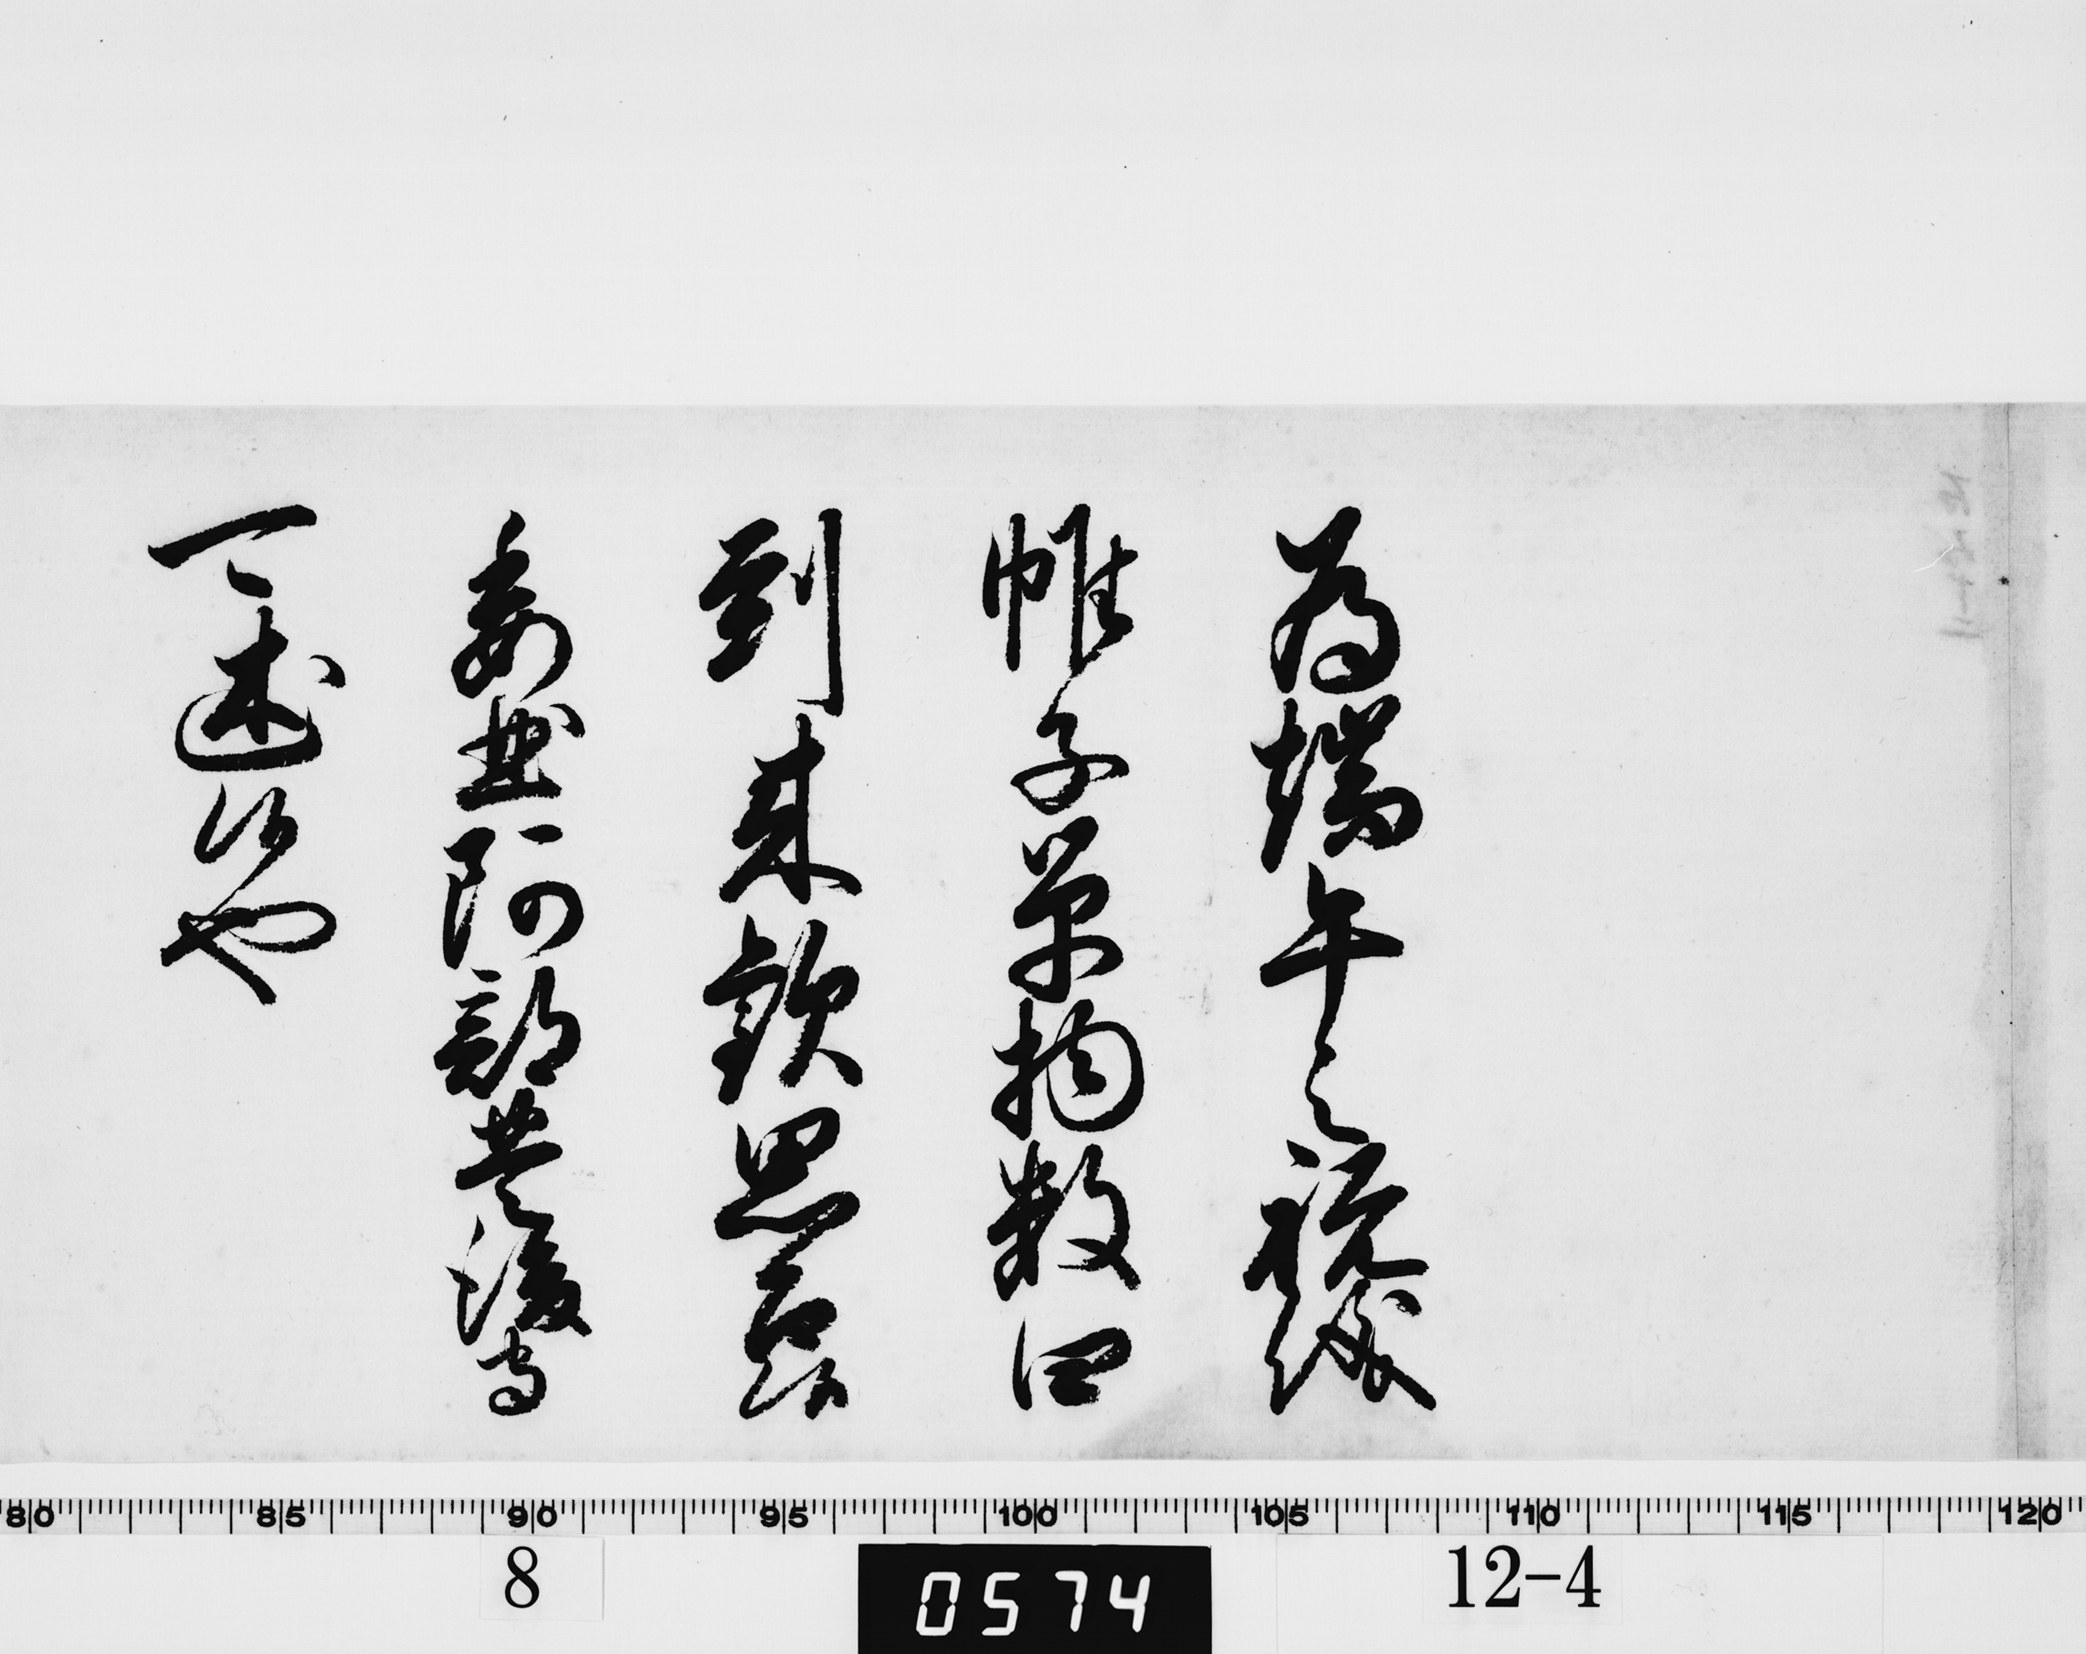 為端午之祝儀
帷子単物数四
到来歓思召候
委曲阿部豊後守
可述候也
80 85 90 95 100 105 110 115 120
8 0574 12-4